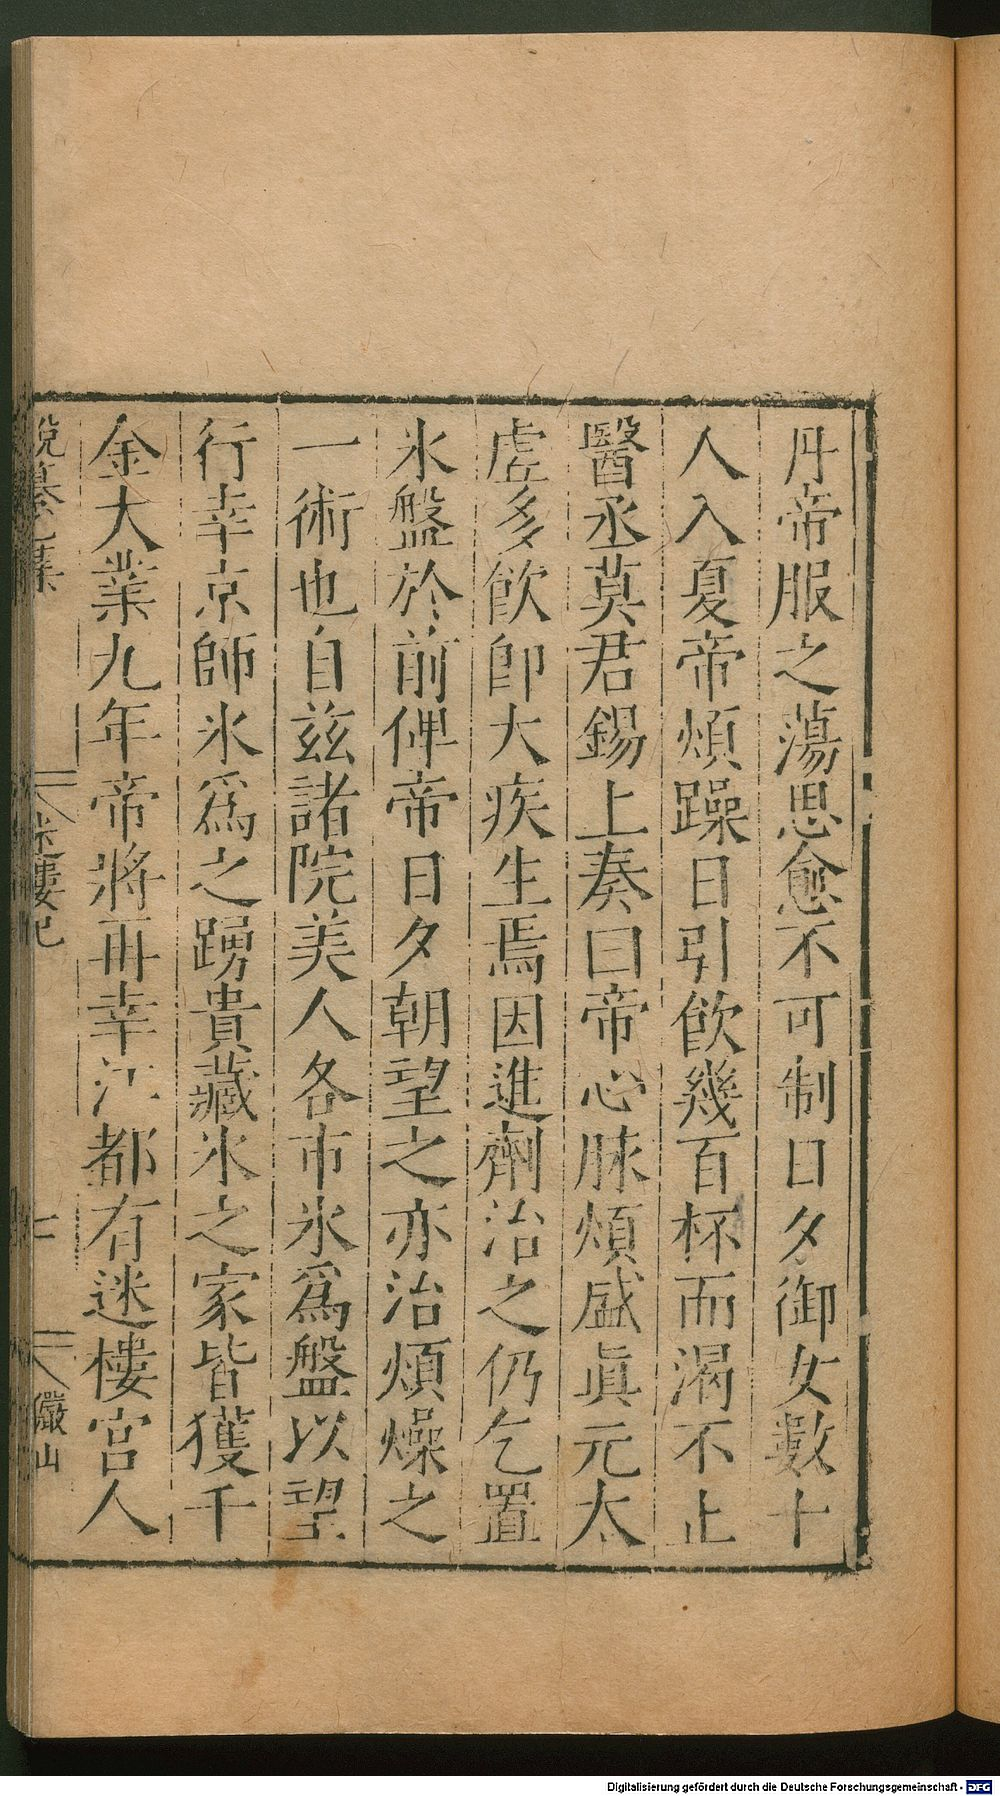 丹帝服之蕩思愈不可制日夕御女數十
人入夏帝煩躁日引飲幾百杯而渴不止
醫丞莫君錫上奏曰帝心脉煩盛眞元太
虛多飲卽大疾生焉因進劑治之仍乞置
氷盤於前俾帝日夕朝望之亦治煩燥之
一術也自兹諸院美人各市氷爲盤以望
行幸京師氷爲之踴貴藏氷之家皆獲千
金大業九年帝將再幸江都有迷樓宮人
迷樓記
七
儼山
Digitalisierung gefördert durch die Deutsche Forschungsgemeinschaft - DFG